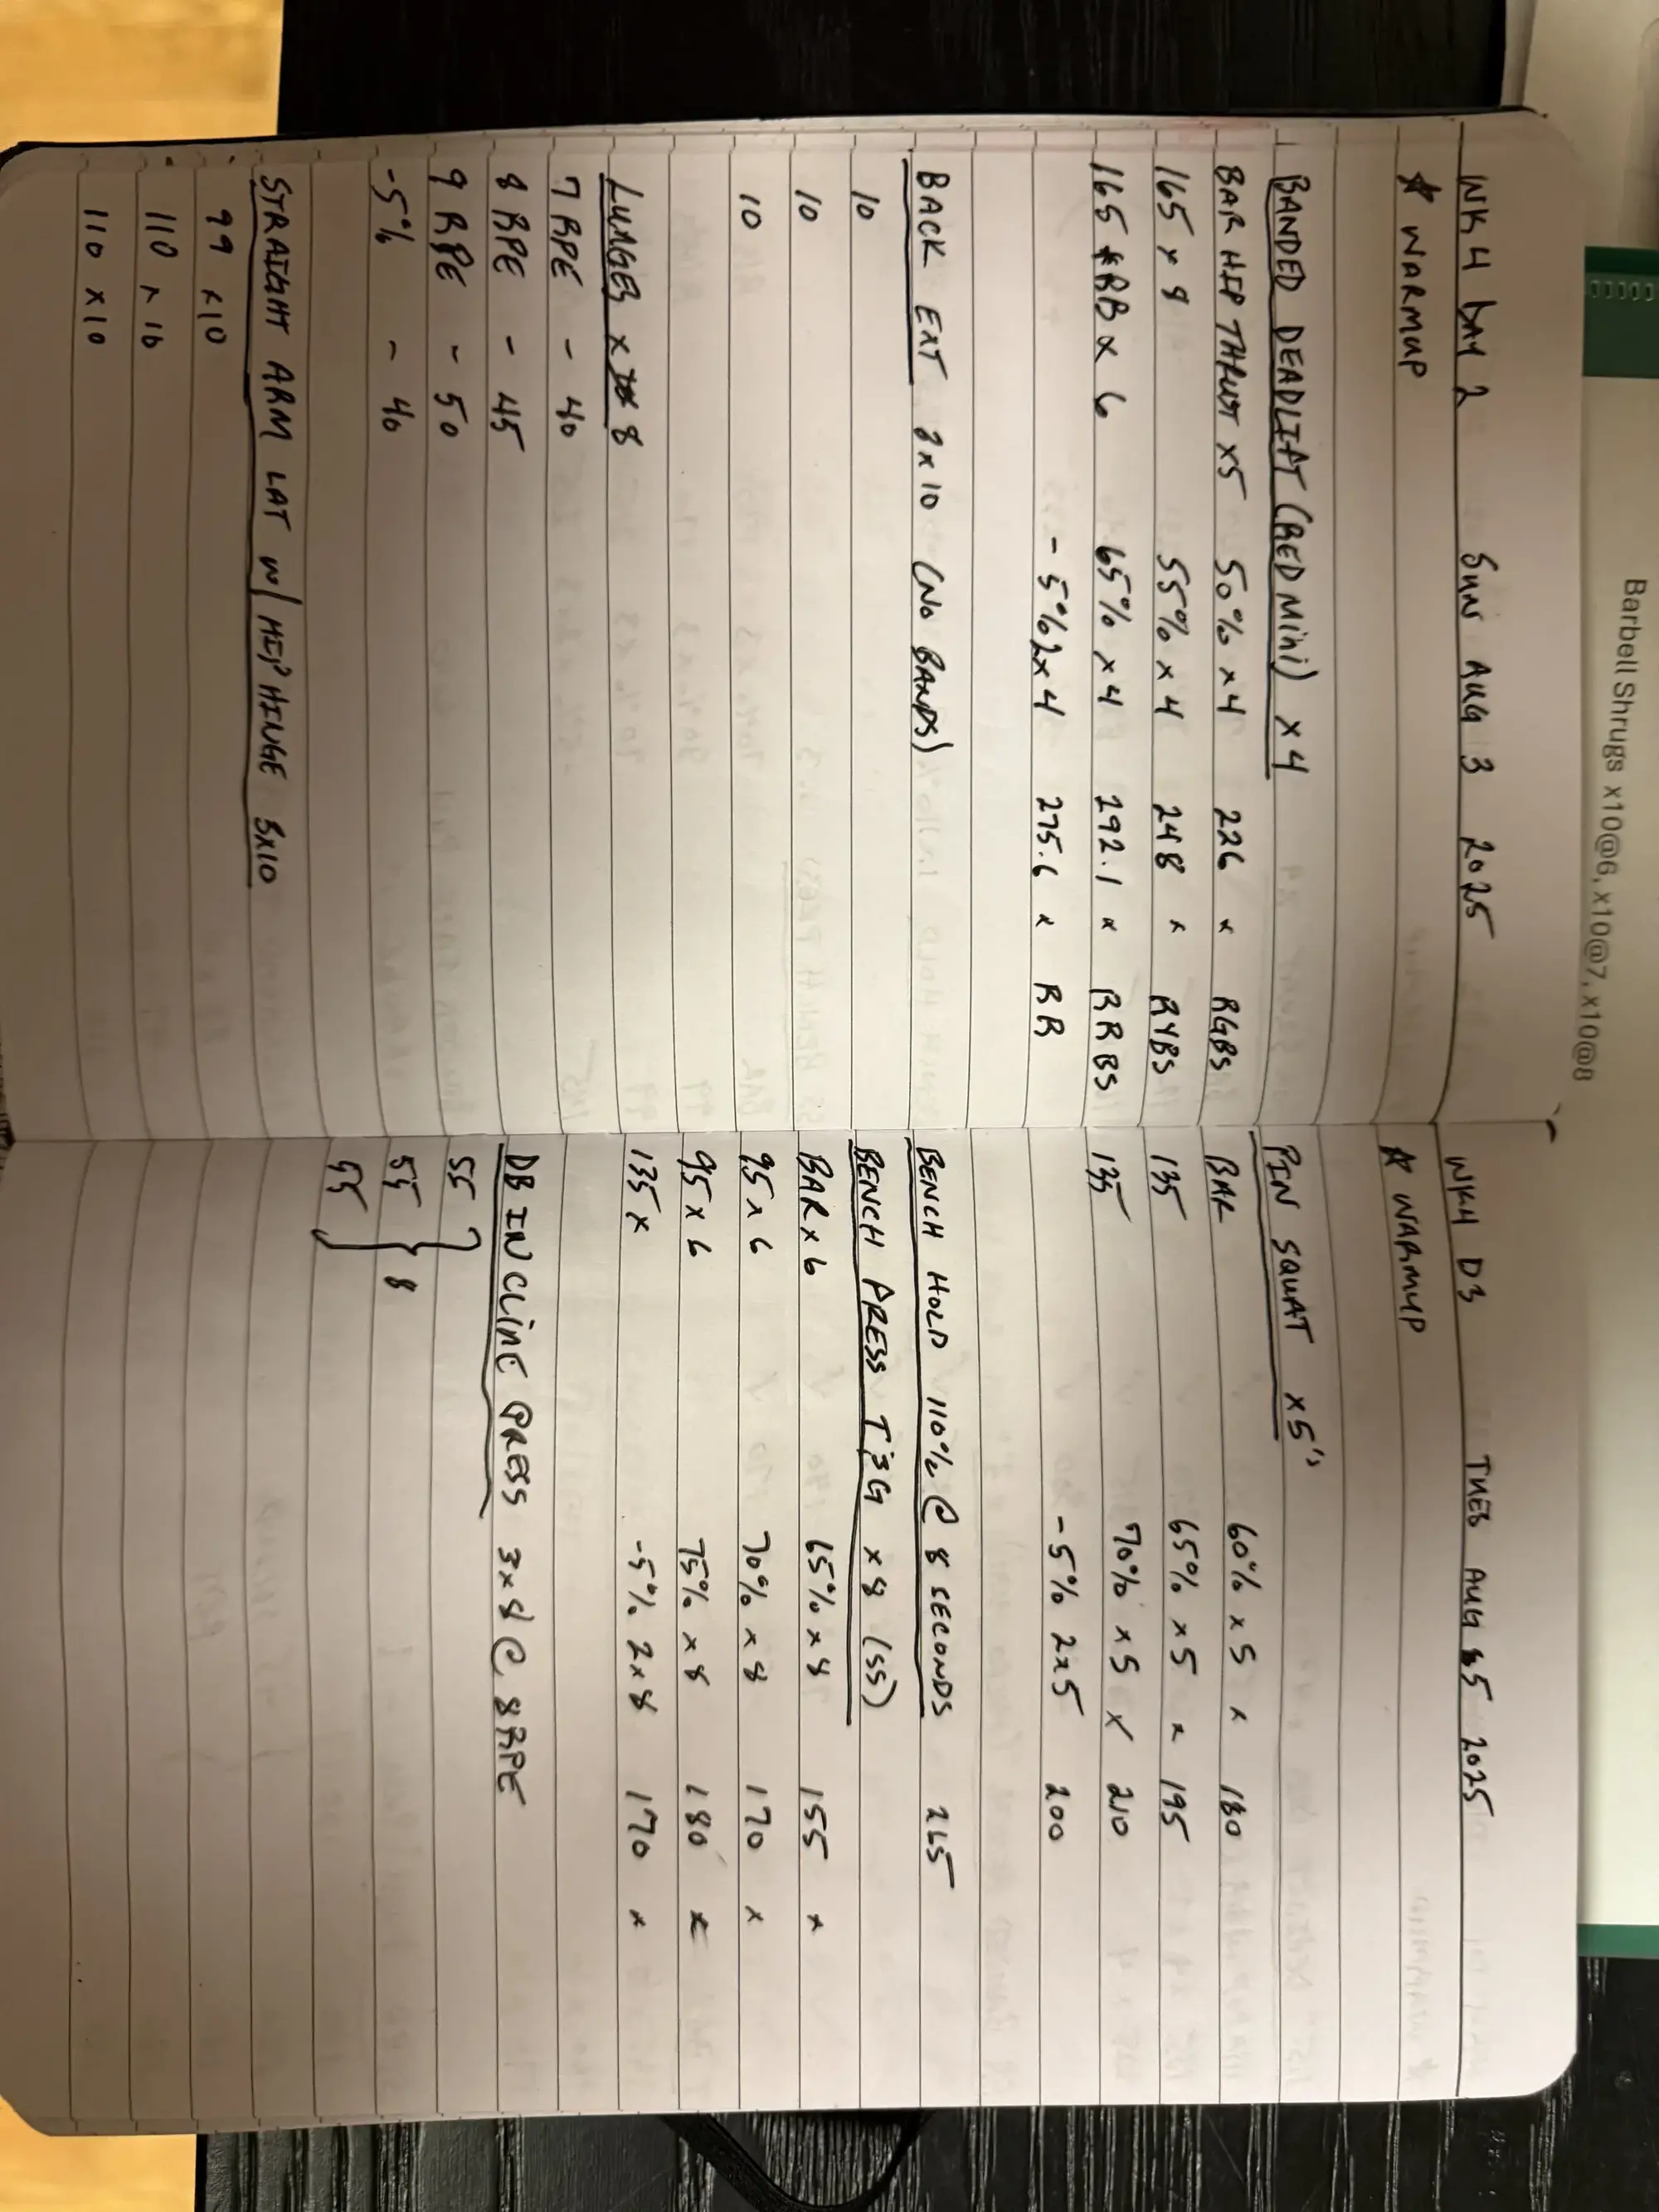 Barbell Shrugs x10@6, x10@7, x10@8
WK 4 DAY 2 SUN AUG 3 2025
* WARMUP
BANDED DEADLIFT (RED MINI) x4
BAR HIP THRUST x5 50% x4 226 x RGBS
165 x 8 55% x 4 248 x RYBS
165 RB x 6 65% x 4 292.1 x RRBS
-5% 2x4 275.6 x RR
BACK EXT 3x10 (NO BANDS)
10
10
10
LUNGES x 8
7 RPE - 40
8 RPE - 45
9 RPE - 50
-5% - 40
STRAIGHT ARM LAT w/ HIP HINGE 3x10
99 x10
110 x 10
110 x10
WK4 D3 TUES AUG 5 2025
* WARMUP
PIN SQUAT x5's
BAR 60% x 5 x 180
135 65% x5 x 195
135 70% x5 x 210
-5% 2x5 200
BENCH HOLD 110% @ 8 SECONDS 265
BENCH PRESS T3G x8 (SS)
BAR x 6 65% x 8 155 x
95 x 6 70% x 8 170 x
95 x 6 75% x 8 180 x
135 x -5% 2x8 170 x
DB INCLINE PRESS 3x8 @ 8RPE
55
55 } 8
55